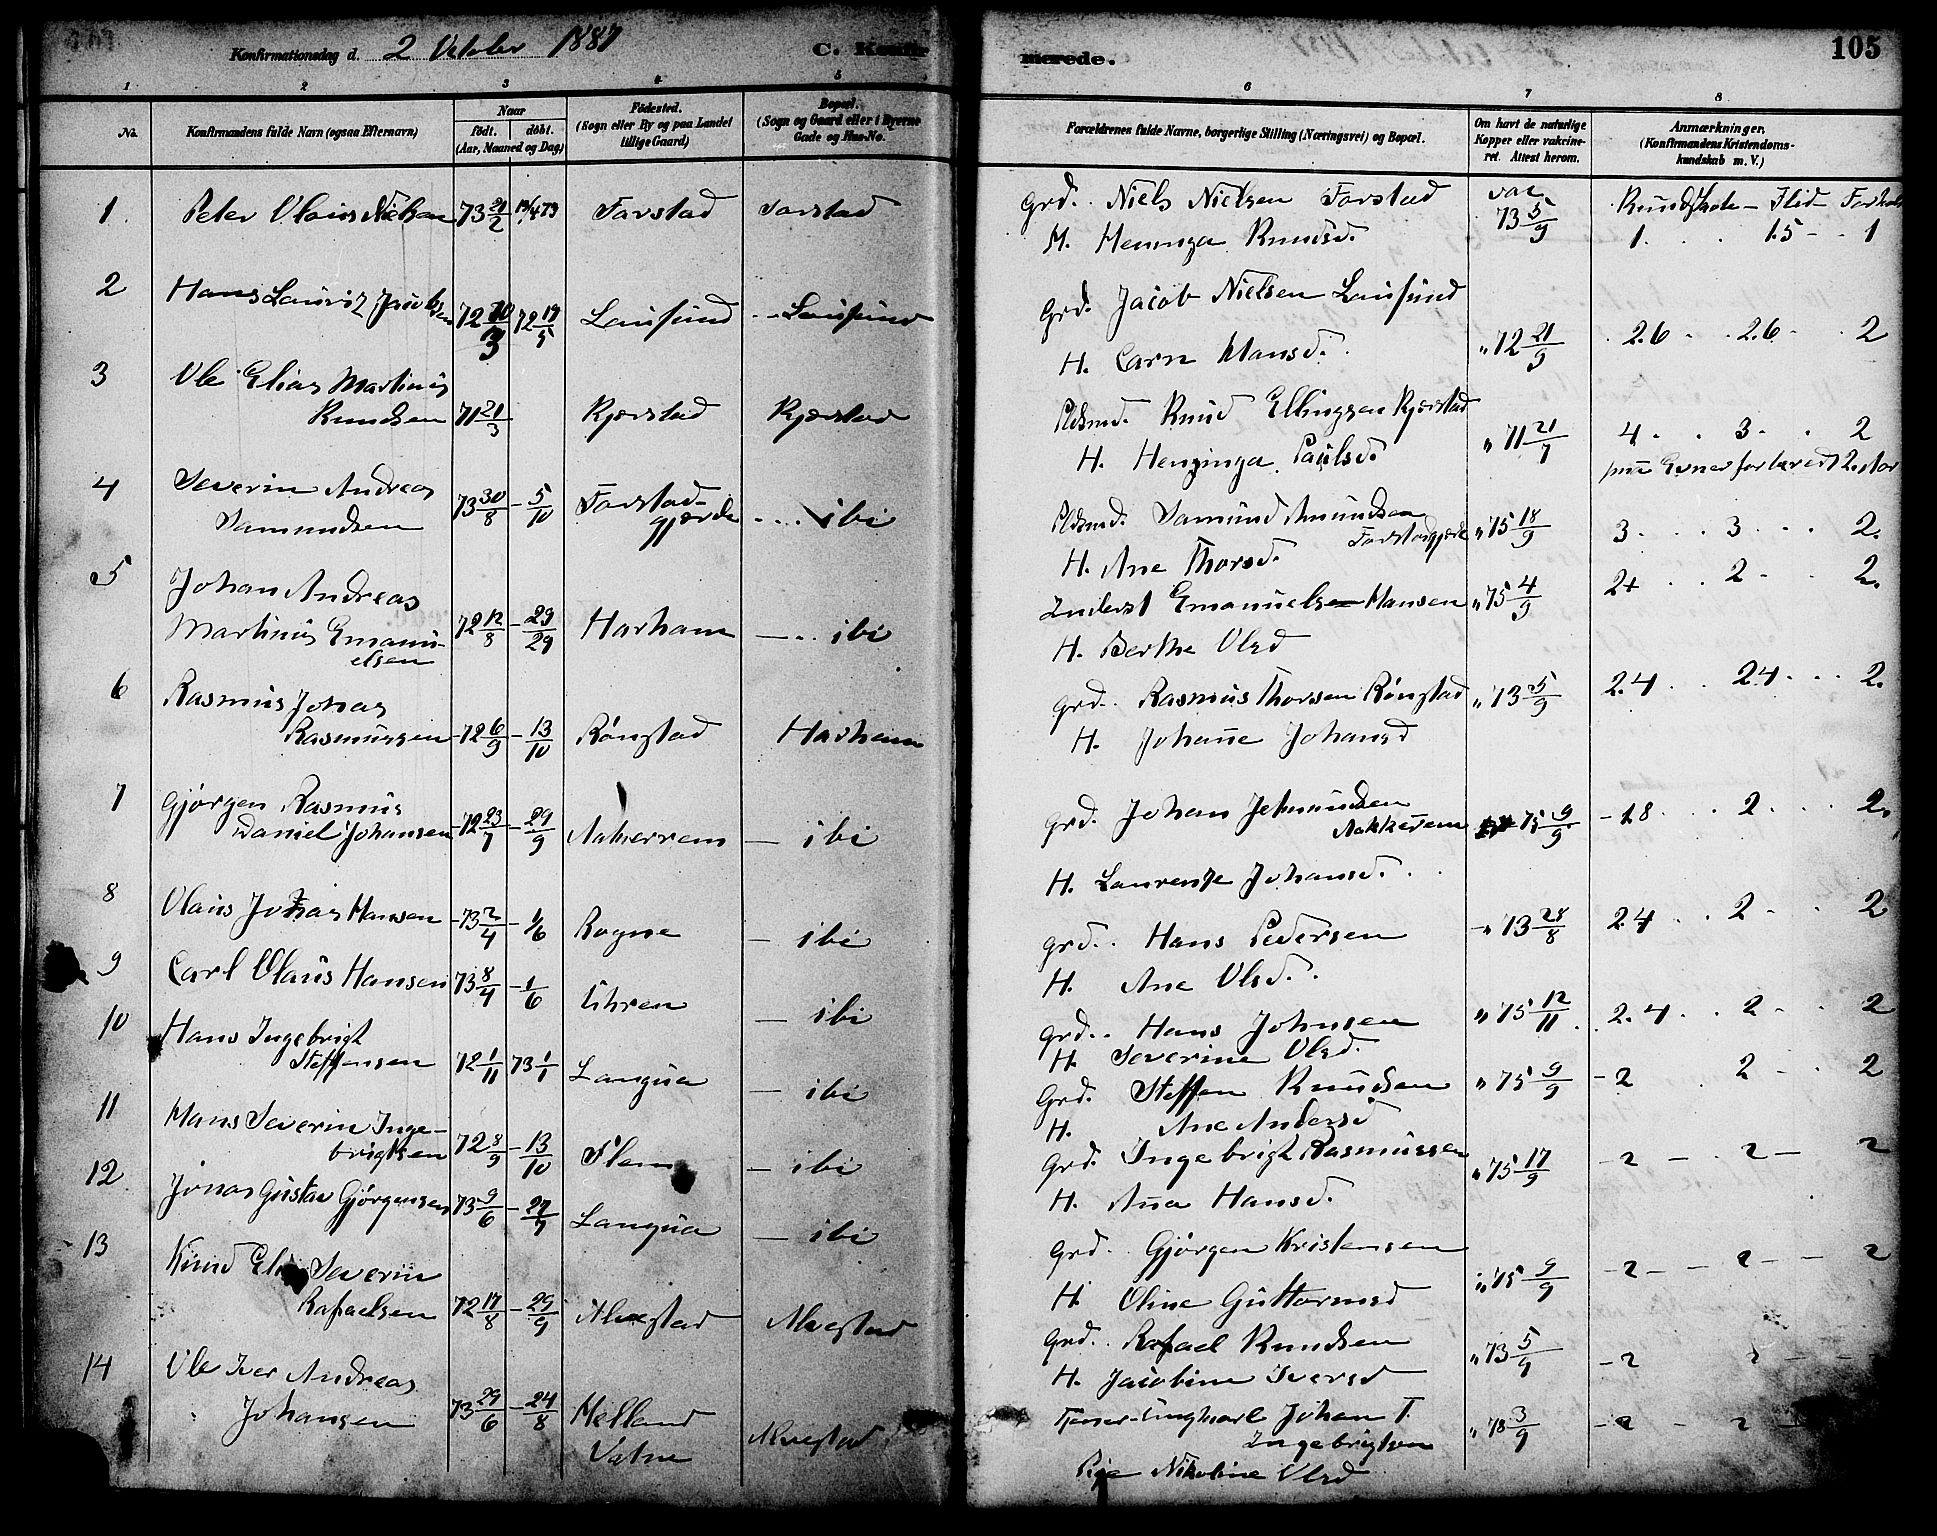 Konfirmationsdag d. 2 October 1887
C. Konfir
merede.
105
1 2 3 4 5 6 7 8
No.
Konfirmandens fulde Navn (ogsaa Efternavn)
Naar
födt. döbt.
(Aar, Maaned og Dag)
Födested.
(Sogn eller By og paa Landet
tillige Gaard)
Bopæl.
(Sogn og Gaard eller i Byerne
Gade og Hus-No.
Forældrenes fulde Navne, borgerlige Stilling (Næringsvei) og Bopæl.
Om havt de naturlige
Kopper eller vakcine-
ret. Attest herom.
Anmærkninger.
(Konfirmandens Kristendoms-
kundskab m. V.)
1 Peter Olaus Nielsen 73 21/2 13/4 73 Farstad Farstad
Grd. Niels Nielsen Farstad
H. Heninga Knudsd.
vac 73 5/9
Kundskab - Flid -
1 . . 1.5 - . 1
2 Hans Lauritz Jacobsen 72 10/3 72 19/5 Lausund - Lausund
Grd. Jacob Nielsen Lausund
H. Carn Hansd.
" 72 21/9 2.6 . . 2.6 . . 2
3 Ole Elias Martinus
Knudsen 71 21/3 Kjerstad Kjerstad
Pldsmd. Knud Ellingsen Kjerstad
H. Henninga Paulsd.
" 71 21/7 4 . . 3 . . 2
4 Severin Andreas
Samundsen 73 30/8 - 5/10 Farstad-
gjærde .... ibi
Pldsmd. Samund Amundsen
Farstadgjerde
H. Ane Thorsd.
" 75 18/9 3 . . . 3 . . . 2.
5 Johan Andreas
Martinus Emanu-
elsen 72 12/8 - 29/29 Harham - .. ibi
Inderst Emanuelsen Hansen
H. Berthe Olsd
" 75 4/9 2+ . . 2 - . 2.
6 Rasmus Johan
Rasmussen - 72 6/9 - 13/10 Rönstad Harham
Grd. Rasmus Thorsen Rönstad
H. Johanne Johansd
" 73 5/9 2.4 . . 2.4 . . . 2.
7 Gjörgen Rasmus
Daniel Johansen - 72 23/7 - 29/9 Aakerrem - ibi
Grd. Johan Jetmundsen
Aakkerem
H. Laurentze Johansd.
75 9/9 - 1.8 . . 2 . . . 2.
8 Olaus Johan Hansen - 73 2/4 - 1/6 Rogne - ibi
Grd. Hans Pedersen
H. Ane Olsd.
" 73 28/8 2.4 . . 2 - . 2
9 Carl Olaus Hansen 73 8/4 - 1/6 Uhren - ibi
Grd. Hans Johnsen
H. Severine Olsd.
" 75 12/11 2.4 . . 2 - . 2
10 Hans Ingebrigt
Steffensen 72 1/11 73 1/1 Langva - ibi
Grd. Steffen Knudsen
H. Ane Andersd
" 75 9/9 - 2 . 2 - . 2
11 Hans Severin Inge-
brigtsen 72 8/9 - 13/10 Flem - ibi
Grd. Ingebrigt Rasmussen
H. Anna Hansd.
" 75 17/9 - 2 - . 2 - 2
12 Jonas Gustav Gjörgensen 73 9/6 - 27/7 Langva - ibi
Grd. Gjörgen Kristensen
H. Oline Guttormsd
" 75 9/9 - 2 - - 2 - - 2
13 Knud Elias Severin
Rafaelsen 72 17/8 - 29/9 Alvestad Alvestad
Grd. Rafael Knudsen
H. Jacobine Iversd
" 73 5/9 - 2 2 - -
14 Ole Iver Andreas
Johansen 73 29/6 - 24/8 Helland
Vatne Alvestad
Ungkarl Johan T.
Ingebrigtsen
Pige Nikoline Olsd
" 73 3/9 - 2 - 2 -